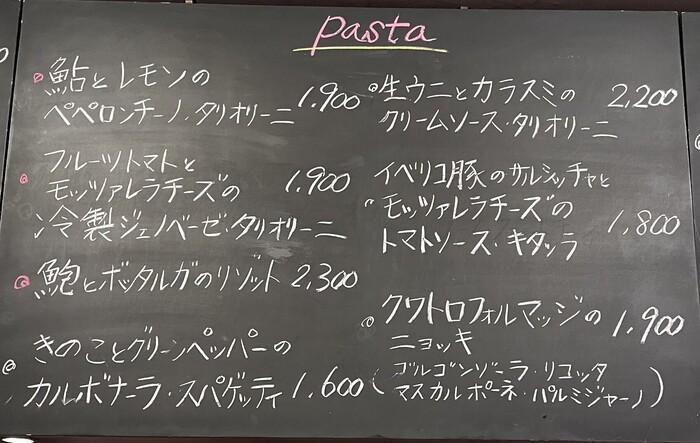 pasta
鮎とレモンの
ペペロンチーノ・タリオリーニ 1,900
フルーツトマトと
モッツァレラチーズの 1,900
冷製ジェノベーゼ・タリオリーニ
鮑とボッタルガのリゾット 2,300
きのことグリーンペッパーの
カルボナーラ・スパゲッティ 1,600
生ウニとカラスミの 2,200
クリームソース・タリオリーニ
イベリコ豚のサルシッチャと
モッツァレラチーズの 1,800
トマトソース・キタッラ
クワトロフォルマッジの 1,900
ニョッキ
(ゴルゴンゾーラ・リコッタ
マスカルポーネ・パルミジャーノ)